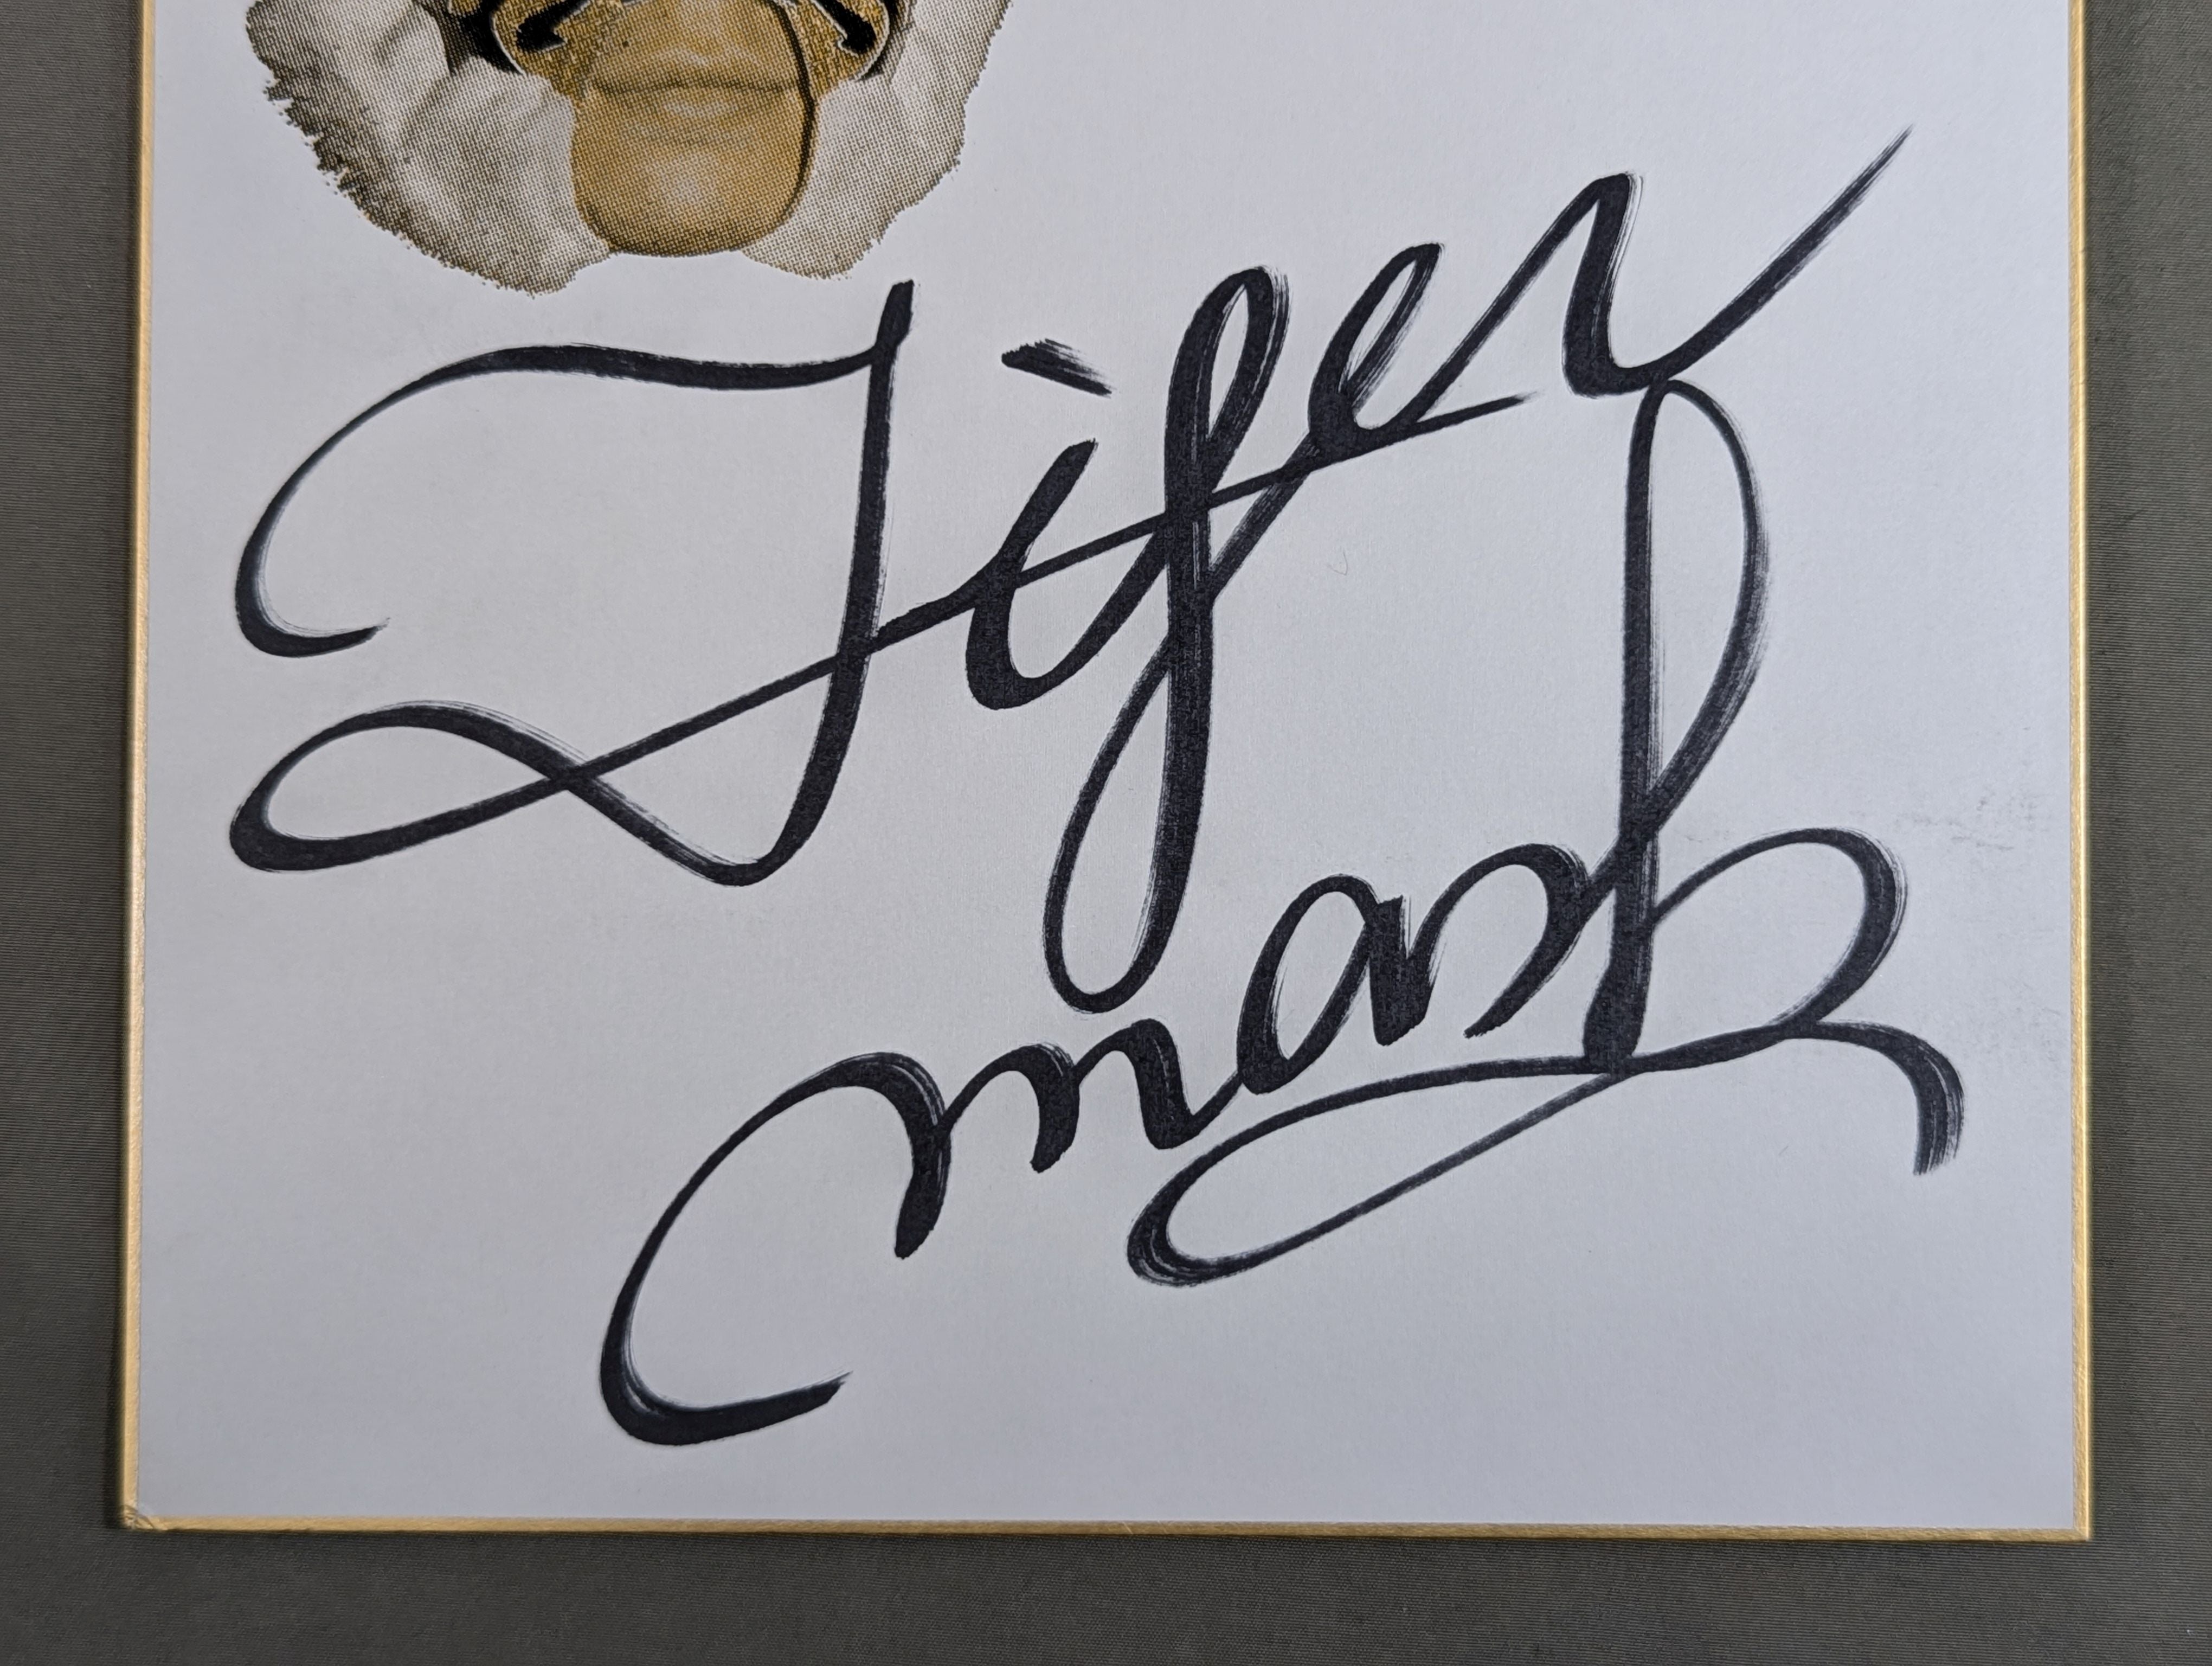 Tiger
mask